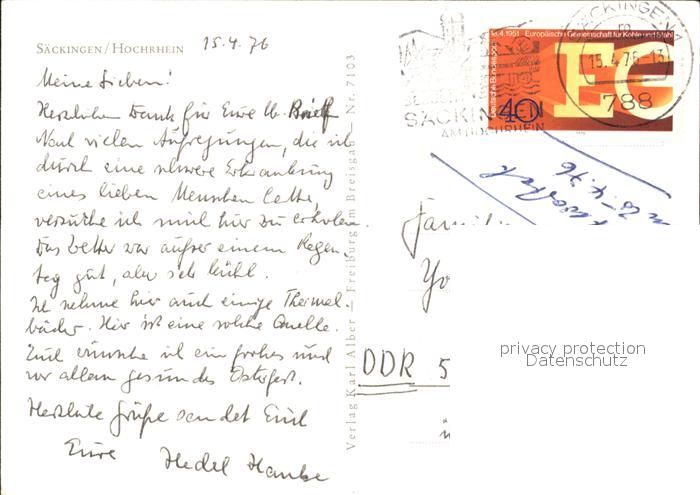 SÄCKINGEN/HOCHRHEIN 15.4.76
Meine Lieben!
Herzlichen Dank für Eure lb. Brief
Nach vielen Aufregungen, die ich
durch eine schwere Erkrankung
eines lieben Menschen hatte,
versuche ich mich hier zu erholen.
Das Wetter war außer einem Regen-
tag gut, aber sehr kühl.
Ich nehme hier auch einige Thermal-
bäder. Hier ist eine solche Quelle.
Euch wünsche ich ein frohes und
vor allem gesundes Osterfest.
Herzliche Grüße sendet Euch
Eure Hedel
Verlag Karl Alber — Freiburg im Breisgau — Nr. 7103
18.4.1951 · Europäische Gemeinschaft für Kohle und Stahl
Deutsche Bundespost
40
EG
SÄCKINGEN
AM HOCHRHEIN
SÄCKINGEN
15.4.76-13
788
Famili
Yo
DDR 5
privacy protection
Datenschutz